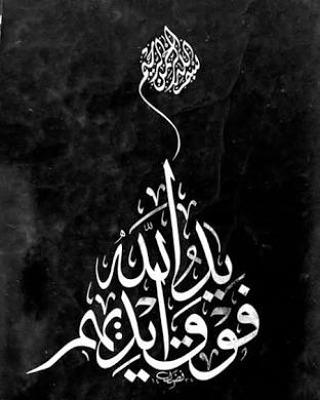 بسم الله الرحمن الرحيم
يَدُ اللّٰهُ
فَوْقَ اَيْدِيهِمْ